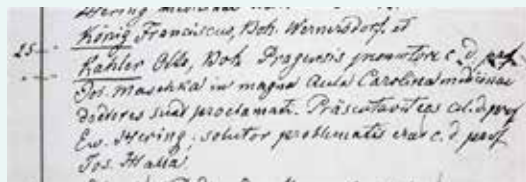 Hering
König Franciscus, Boh. Wernersdorf. et
25
Kahler Otto, Boh. Pragensis promotore c. d. prof.
Jos. Maschka in magna Aula Carolina medicinae
doctores sunt proclamati. Präsentavit eos cel. d. prof
Ew. Hering; solutor problematis erat c. d. prof
Jos. Halla.